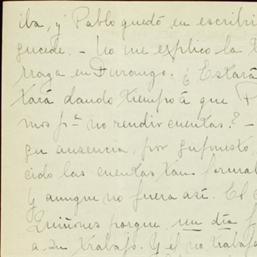 iba, y Pablo quedó en escribir
sucede. - No me explico la
en Durango. ¿ Estará
dando tiempo á que
mos pa no rendir cuentas? -
ausencia, por supuesto
cido las cuentas tan formal
y aunque no fuera así. El
Quiñones porque un día
a su trabajo. Y si no trabaja